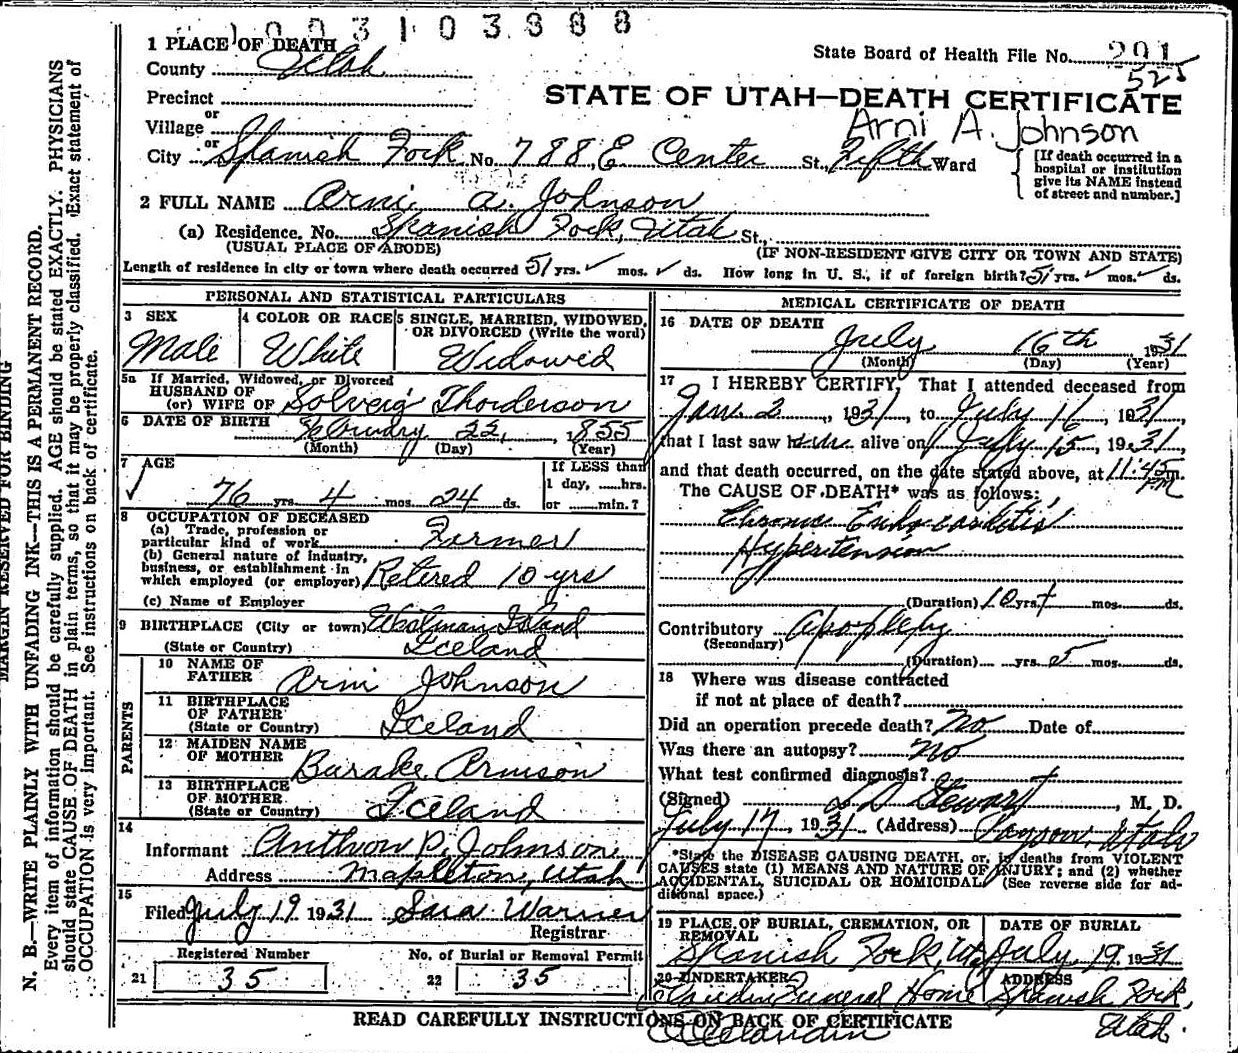 1003103888
State Board of Health File No. 291
525
STATE OF UTAH—DEATH CERTIFICATE
Arni A. Johnson
1 PLACE OF DEATH
County Utah
Precinct
or
Village
or
City Spanish Fork No. 788 E Center St., Fifth Ward
[If death occurred in a
hospital or institution
give its NAME instead
of street and number.]
2 FULL NAME Arni A. Johnson
(a) Residence. No. Spanish Fork, Utah St.,
(USUAL PLACE OF ABODE) (IF NON-RESIDENT GIVE CITY OR TOWN AND STATE)
Length of residence in city or town where death occurred 51 yrs. ✓ mos. ✓ ds. How long in U. S., if of foreign birth? 51 yrs. ✓ mos. ✓ ds.
PERSONAL AND STATISTICAL PARTICULARS
3 SEX
Male
4 COLOR OR RACE
White
5 SINGLE, MARRIED, WIDOWED,
OR DIVORCED (Write the word)
Widowed
5a If Married, Widowed, or Divorced
HUSBAND OF
(or) WIFE OF Solveig Thorderson
6 DATE OF BIRTH February 22, 1855
(Month) (Day) (Year)
7 AGE
✓ 76 yrs. 4 mos. 24 ds.
If LESS than
1 day, ......hrs.
or ......min.?
8 OCCUPATION OF DECEASED
(a) Trade, profession or
particular kind of work Farmer
(b) General nature of industry,
business, or establishment in
which employed (or employer) Retired 10 yrs
(c) Name of Employer
9 BIRTHPLACE (City or town) Island
(State or Country) Iceland
PARENTS
10 NAME OF
FATHER Arni Johnson
11 BIRTHPLACE
OF FATHER
(State or Country) Iceland
12 MAIDEN NAME
OF MOTHER Arnison
13 BIRTHPLACE
OF MOTHER
(State or Country) Iceland
14
Informant P. Johnson
Address Mapleton, Utah
15
Filed July 19 1931 Sara Warner
Registrar
Registered Number
21 35
No. of Burial or Removal Permit
22 35
MEDICAL CERTIFICATE OF DEATH
16 DATE OF DEATH
July 16th 1931
(Month) (Day) (Year)
17 I HEREBY CERTIFY, That I attended deceased from
Jan. 2, 1931, to July 16, 1931,
that I last saw him alive on July 15, 1931,
and that death occurred, on the date stated above, at 11:45 m.
PM
The CAUSE OF DEATH* was as follows:
Chronic Endocarditis
Hypertension
(Duration) 10 yrs. + mos. ds.
Contributory Apoplexy
(Secondary)
(Duration) yrs. 5 mos. ds.
18 Where was disease contracted
if not at place of death?
Did an operation precede death? No Date of
Was there an autopsy? No
What test confirmed diagnosis?
(Signed) Stewart, M. D.
July 17, 1931 (Address) Payson, Utah
*State the DISEASE CAUSING DEATH, or, in deaths from VIOLENT
CAUSES state (1) MEANS AND NATURE OF INJURY; and (2) whether
ACCIDENTAL, SUICIDAL OR HOMICIDAL. (See reverse side for ad-
ditional space.)
19 PLACE OF BURIAL, CREMATION, OR
REMOVAL
Spanish Fork, Utah
DATE OF BURIAL
July 19 1931
20 UNDERTAKER
Funeral Home
ADDRESS
Spanish Fork,
Utah.
READ CAREFULLY INSTRUCTIONS ON BACK OF CERTIFICATE
MARGIN RESERVED FOR BINDING
N. B.—WRITE PLAINLY WITH UNFADING INK—THIS IS A PERMANENT RECORD.
Every item of information should be carefully supplied. AGE should be stated EXACTLY. PHYSICIANS
should state CAUSE OF DEATH in plain terms, so that it may be properly classified. Exact statement of
OCCUPATION is very important. See instructions on back of certificate.